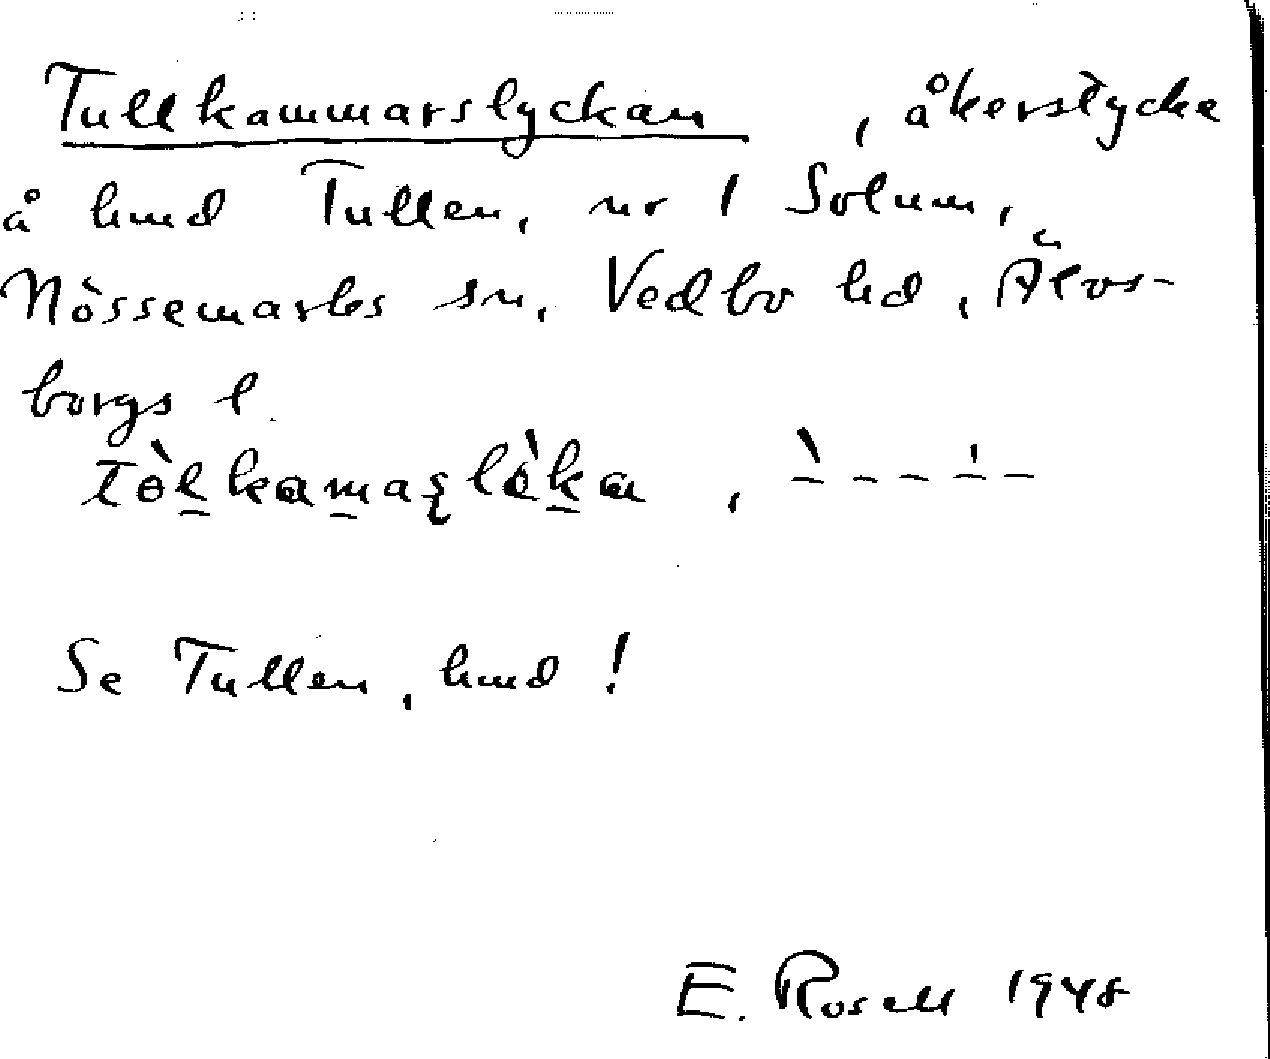 Tullkammarslyckan, åkerstycke
å hmd Tullen, nr 1 Solum,
Nössemarks sn, Vedbo hd, Älvs-
borgs l.
Se Tullen, hmd!
E. Rosell 1948